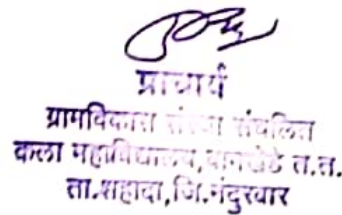 प्राचार्य
ग्रामविकास संस्था संचलित
कला महाविद्यालय, बामखेडे त.त.
ता.शहादा, जि.नंदुरबार